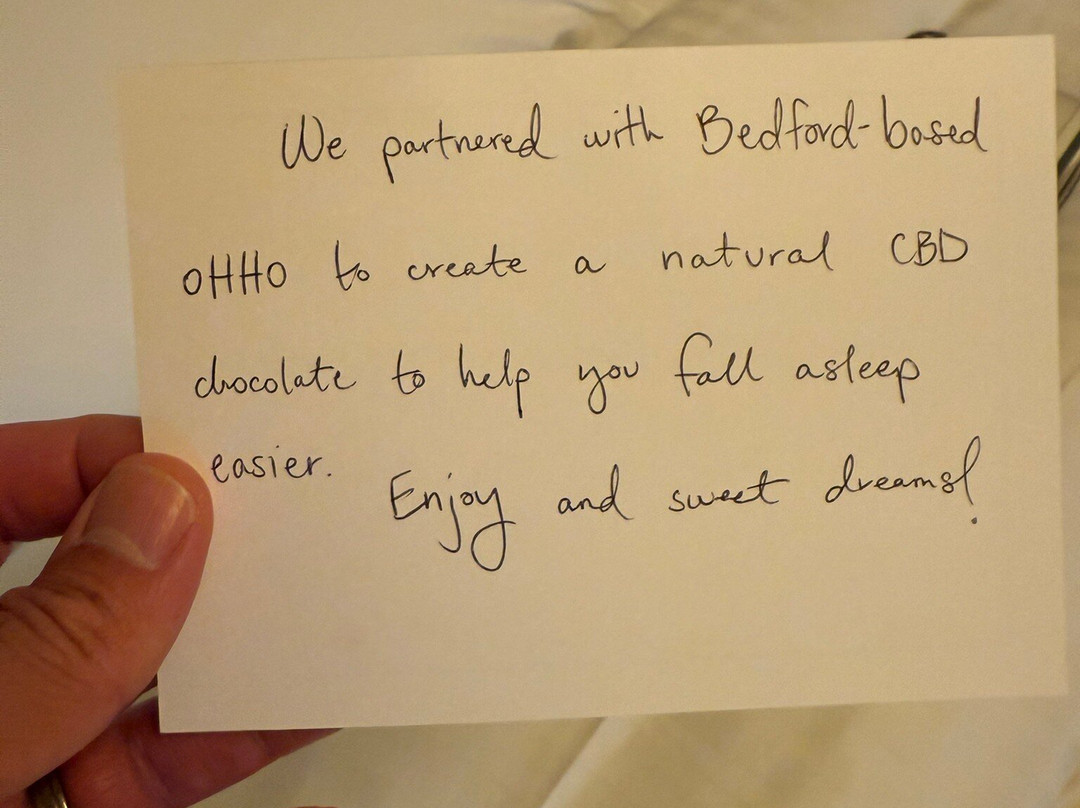 We partnered with Bedford-based
OHHO to create a natural CBD
chocolate to help you fall asleep
easier.
Enjoy and sweet dreams!